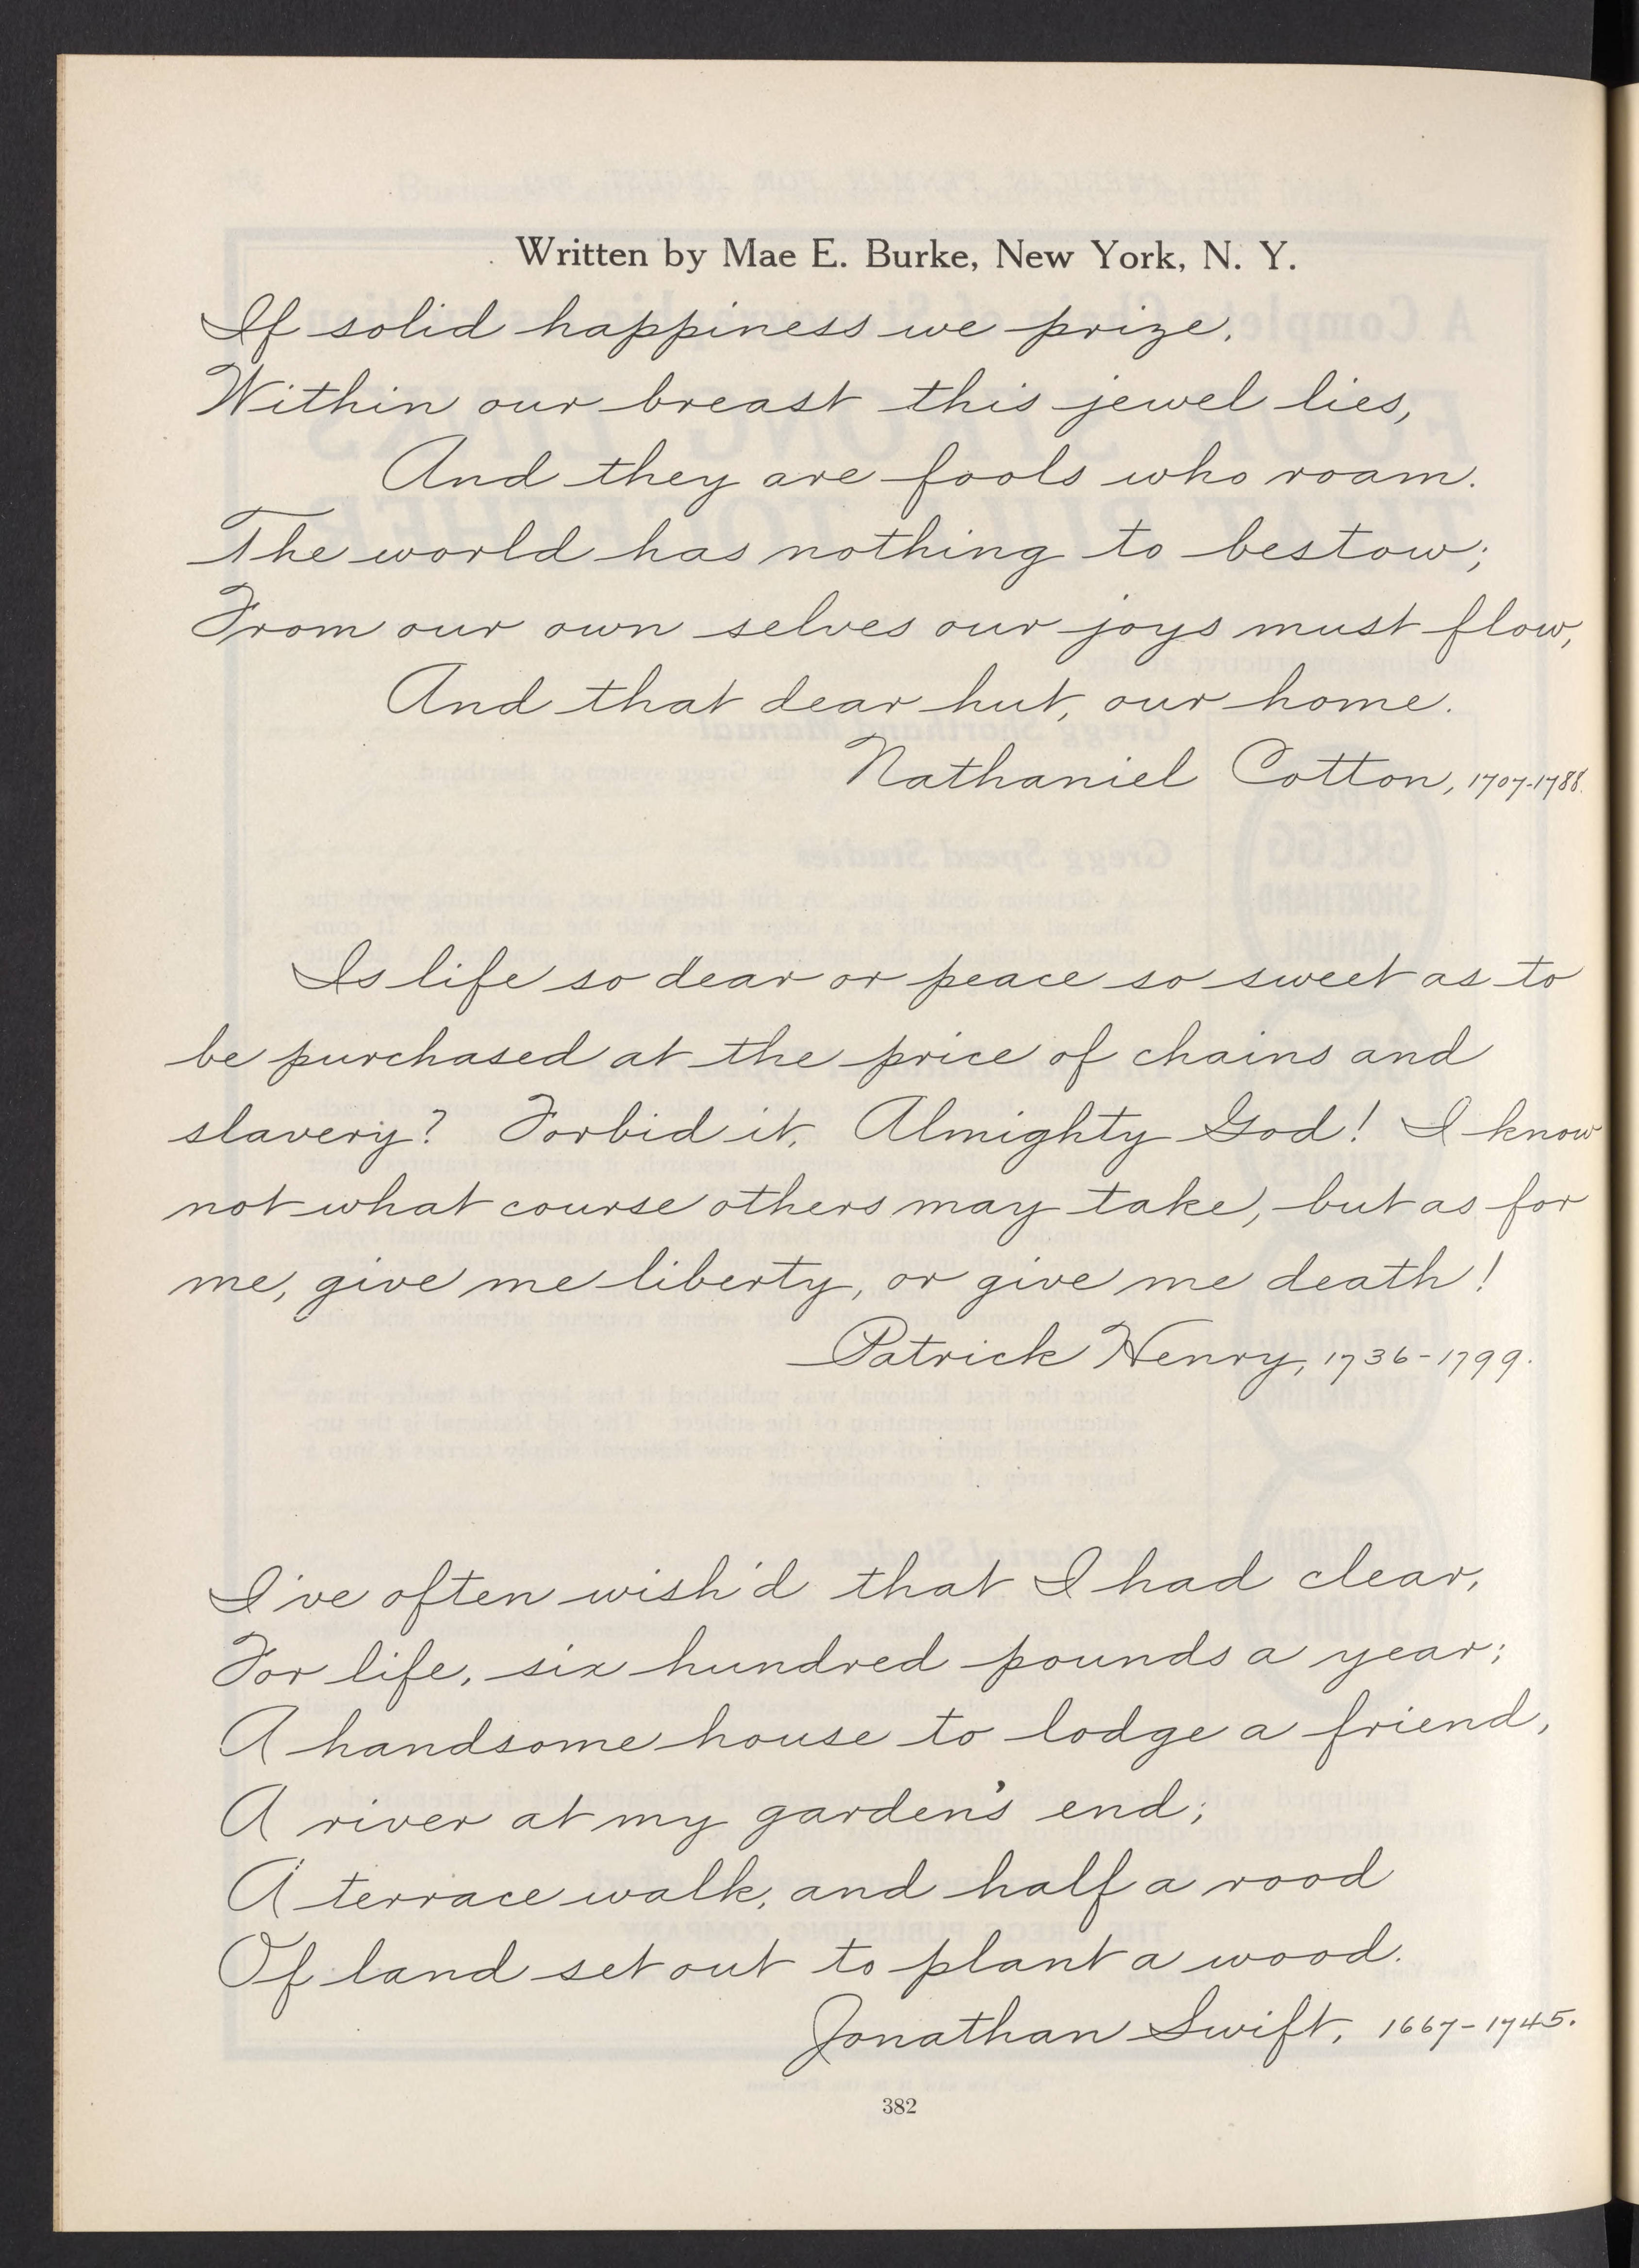 Written by Mae E. Burke, New York, N. Y.
If solid happiness we prize,
Within our breast this jewel lies,
And they are fools who roam.
The world has nothing to bestow;
From our own selves our joys must flow,
And that dear hut, our home.
Nathaniel Cotton, 1707-1788.
Is life so dear or peace so sweet as to
be purchased at the price of chains and
slavery? Forbid it, Almighty God! I know
not what course others may take, but as for
me, give me liberty, or give me death!
Patrick Henry, 1736-1799.
I've often wish'd that I had clear,
For life, six hundred pounds a year;
A handsome house to lodge a friend,
A river at my garden's end;
A terrace walk, and half a rood
Of land set out to plant a wood.
Jonathan Swift, 1667-1745.
382